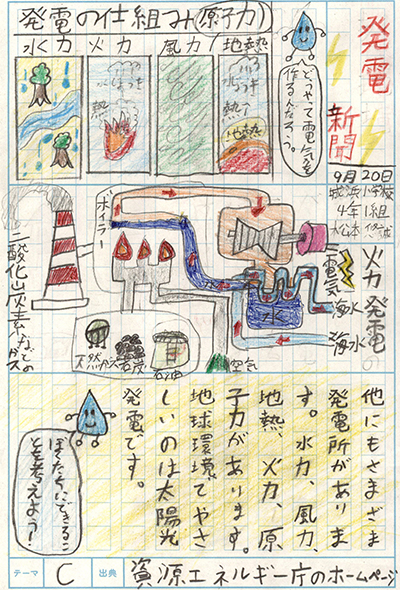 発電新聞
9月20日
4年1組
発電の仕組み(原子力)
水力
火力
風力
地熱
どうやって電気を
作るんだろう。
水
じょうき
熱
水
じょうき
熱
地熱
火力発電
ボイラー
二酸化炭素などの
ガス
天然ガス
石炭
石油
空気
電気
水
海水
海水
他にもさまざま
な発電所がありま
す。水力、風力、
地熱、火力、原
子力があります。
地球環境でやさ
しいのは太陽光
発電です。
ぼくたちにできるこ
とを考えよう!
テーマ
C
出典
資源エネルギー庁のホームページ